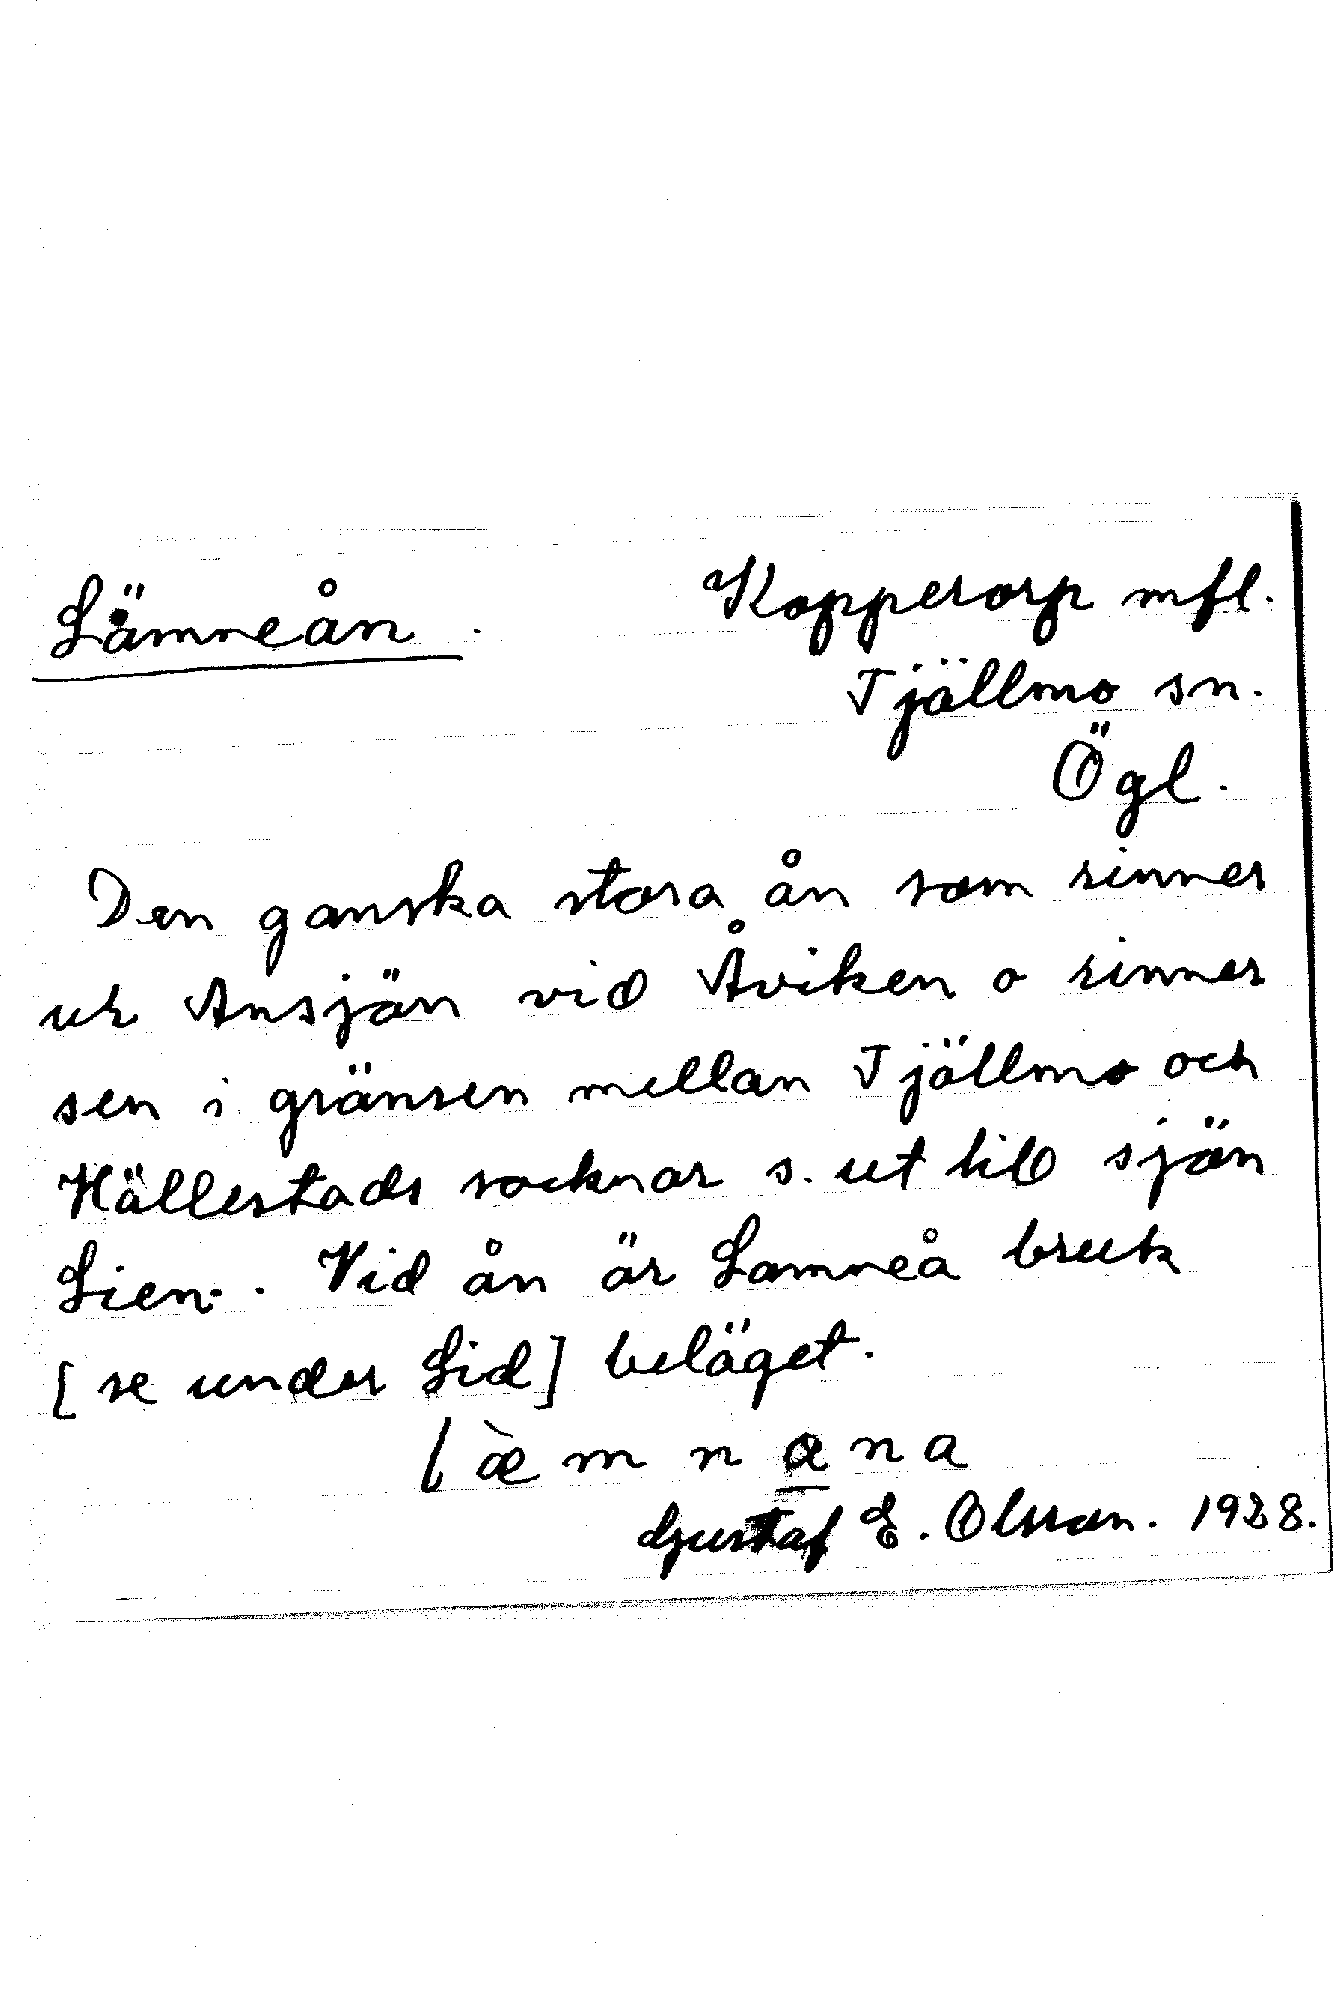 Lämneån. Kopperorp mfl.
Tjällmo sn.
Ögl.
Den ganska stora ån som rinner
ur Ånsjön vid Åviken o rinner
sen i gränsen mellan Tjällmo och
Hällestads socknar s. ut till sjön
Lien. Vid ån är Lämneå bruk
[se under Lid] beläget.
l æ̀ m n a n a
Gustaf E. Olsson. 1928.